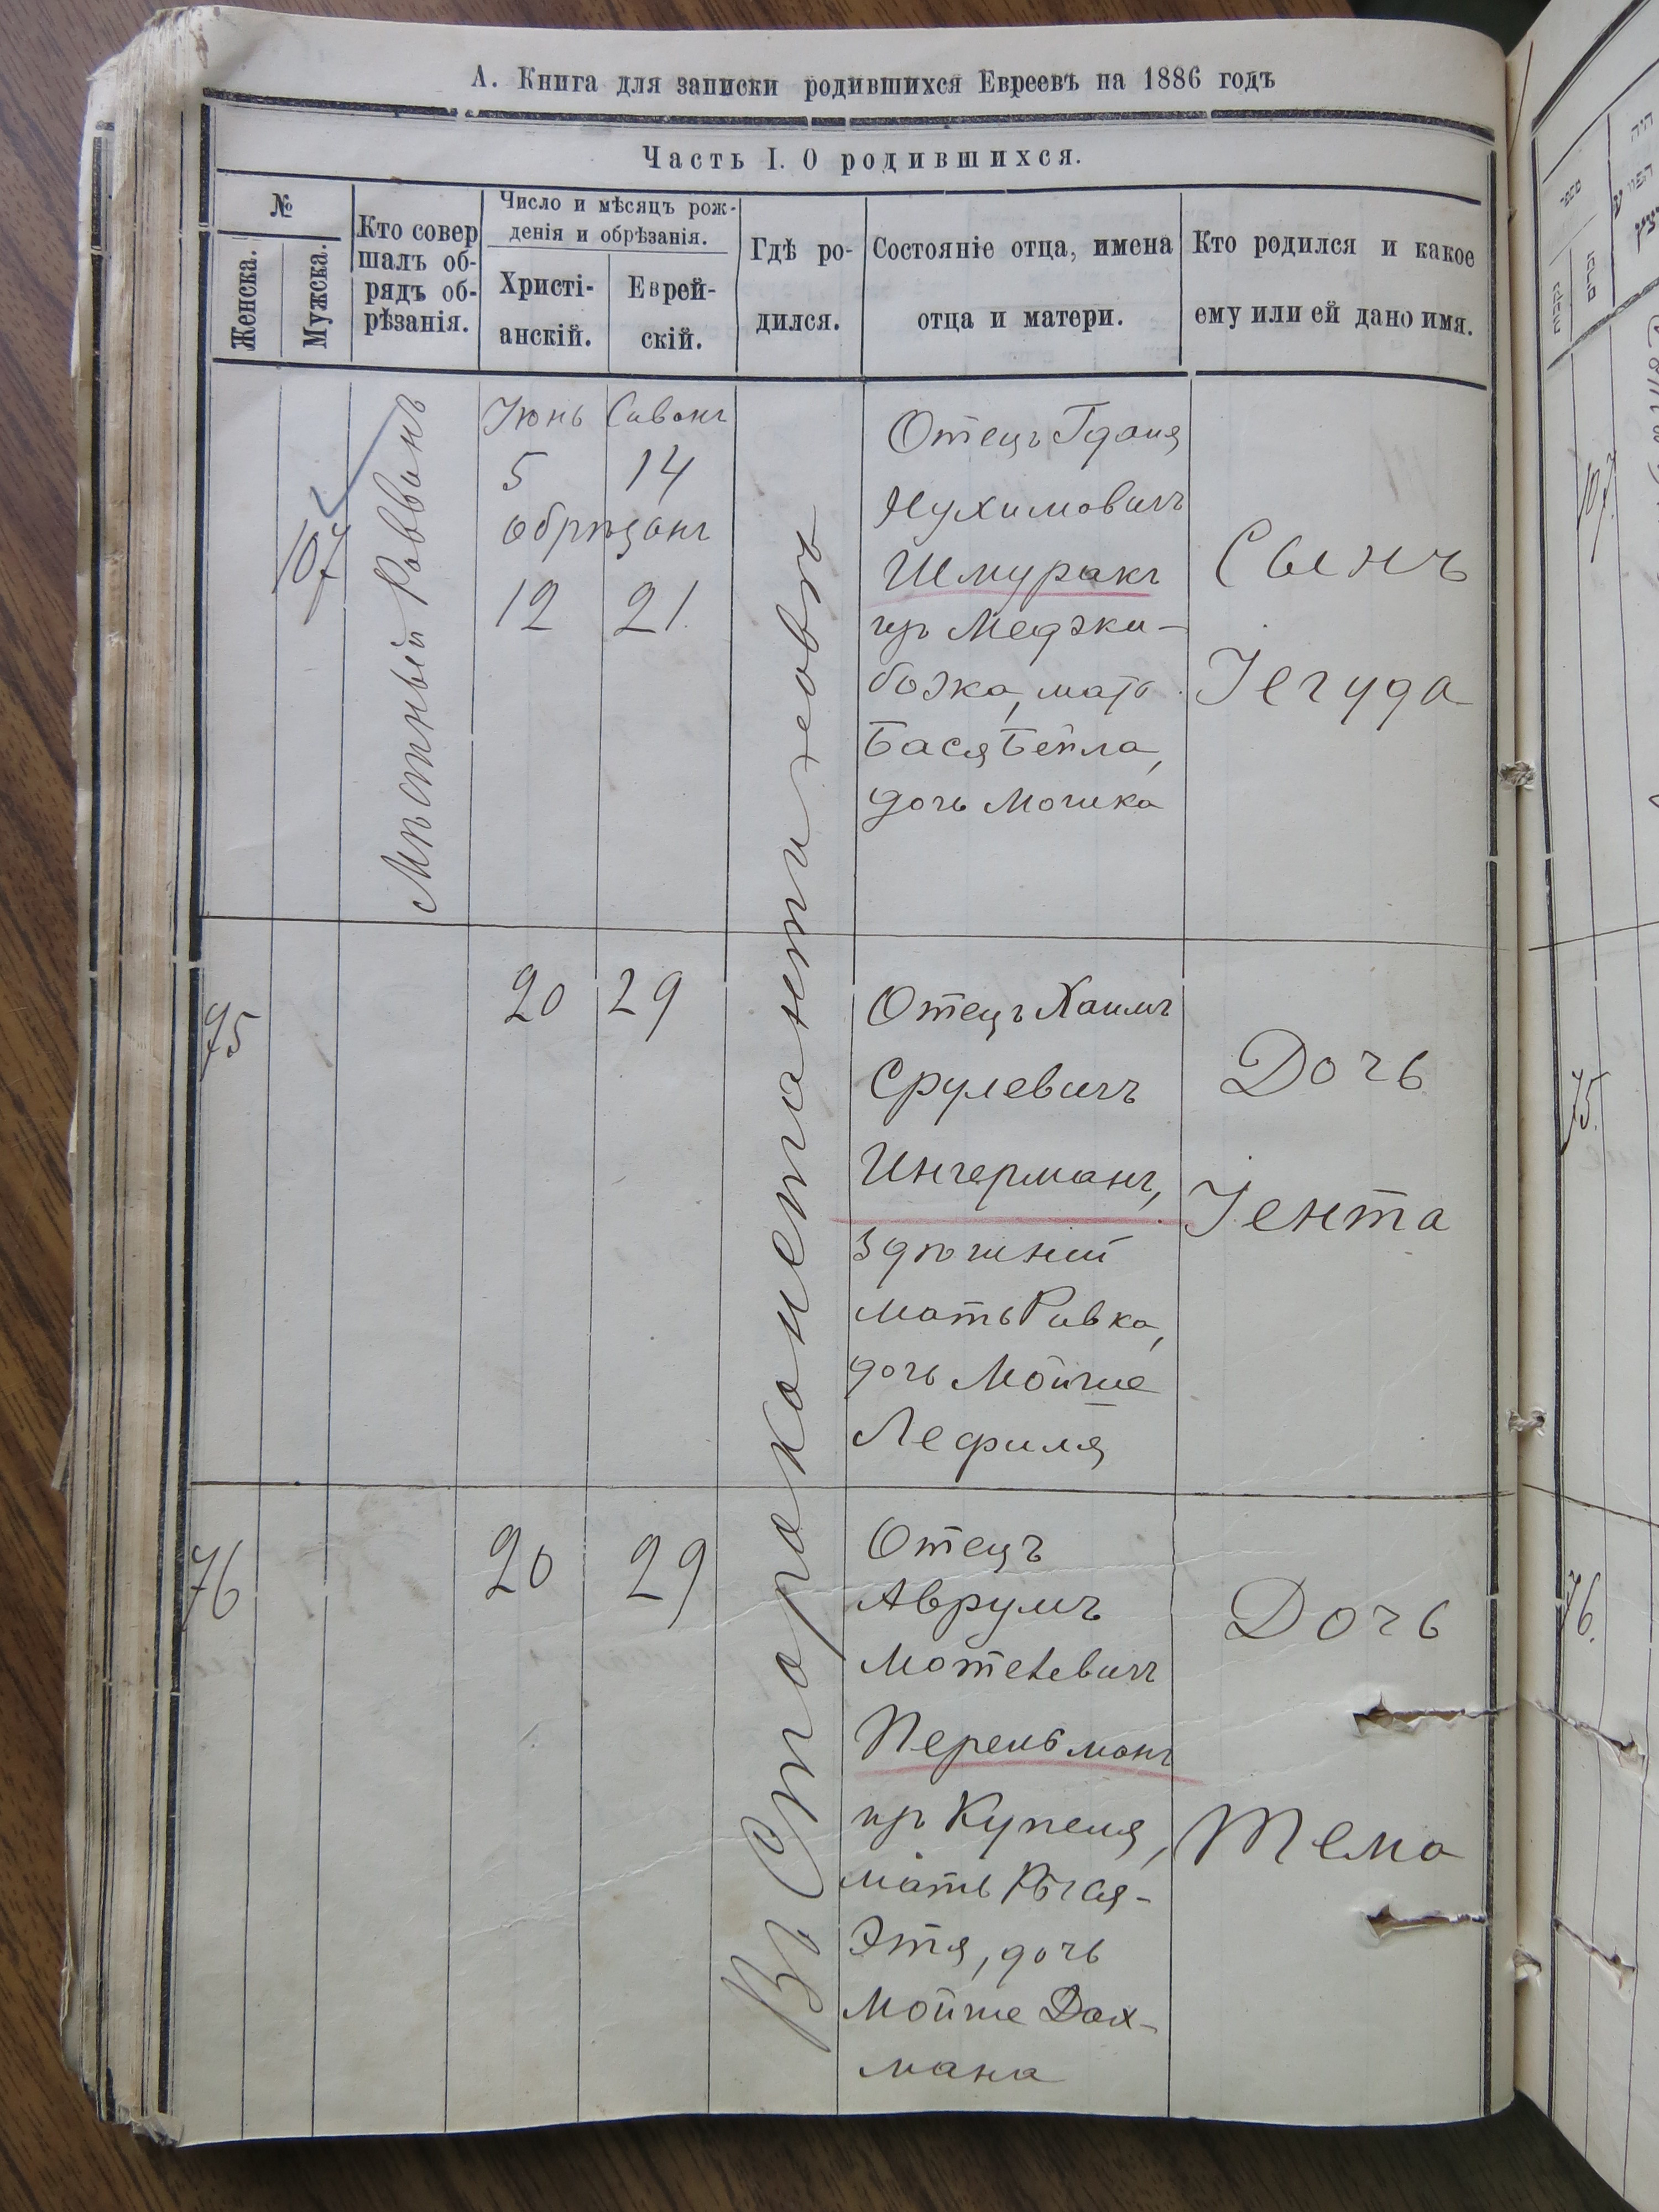 А. Книга для записки родившихся Евреевъ на 1886 годъ
Часть I. О родившихся.
№
Женска.
Мужска.
Кто совер
шалъ об-
рядъ об-
рѣзанія.
Число и мѣсяцъ рож-
денія и обрѣзанія.
Христі-
анскій.
Еврей-
скій.
Гдѣ ро-
дился.
Состояніе отца, имена
отца и матери.
Кто родился и какое
ему или ей дано имя.
107
Мѣстный Раввинъ
Іюнь Сиванъ
5 14
обрѣзанъ
12 21.
Въ Староконстантиновѣ
Отецъ Гдаля
Нухимовичъ
Шмуракъ
изъ Меджи-
божа, мать
Бася Бейла,
дочь Мошка
Сынъ
Іегуда
75
20 29
Отецъ Хаимъ
Срулевичъ
Ингерманъ,
здѣшній
мать Ривка,
дочь Мойше
Дочь
Іента
76
20 29
Отецъ
Аврумъ
Мотелевичъ
Перельманъ
изъ Купеля,
мать Рыся-
Этя, дочь
Мойше Дах-
мана
Дочь
Тема
107
75.
76.